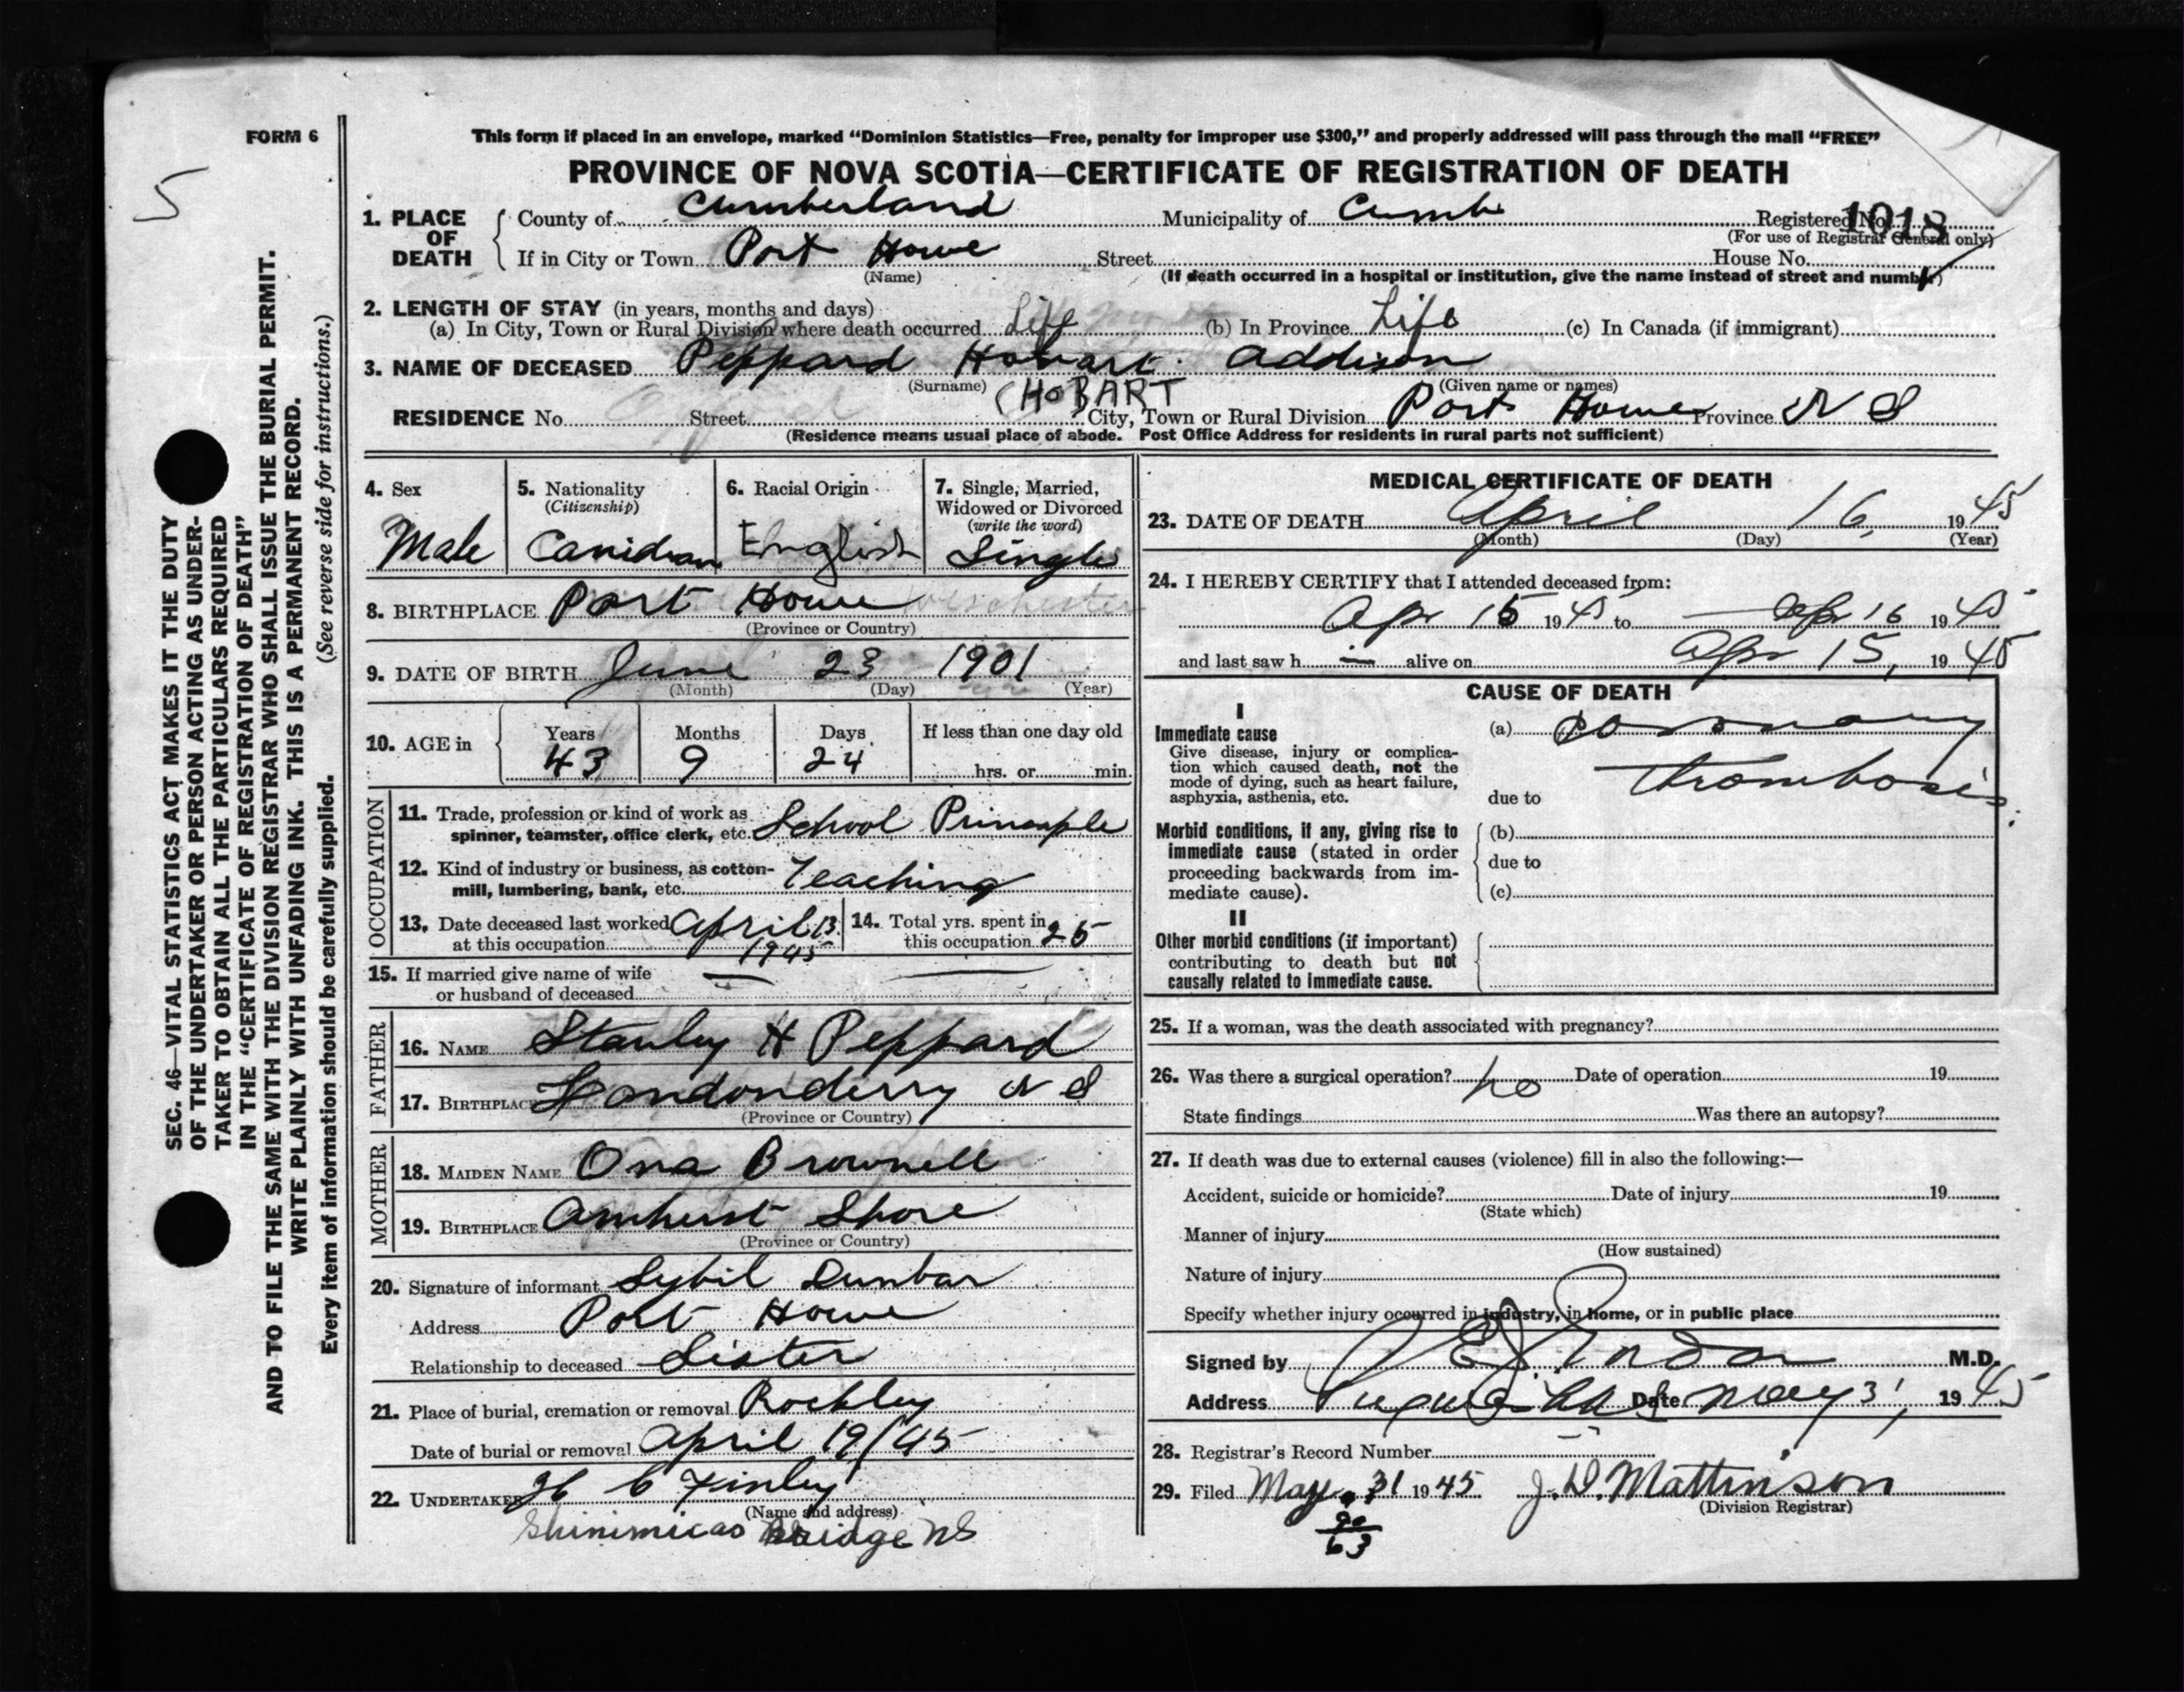 FORM 6
5
This form if placed in an envelope, marked “Dominion Statistics—Free, penalty for improper use $300,” and properly addressed will pass through the mail “FREE”
PROVINCE OF NOVA SCOTIA—CERTIFICATE OF REGISTRATION OF DEATH
1. PLACE OF DEATH
County of Cumberland Municipality of Cumb Registered No. 1018
(For use of Registrar General only)
If in City or Town Port Howe Street House No.
(Name) (If death occurred in a hospital or institution, give the name instead of street and number)
2. LENGTH OF STAY (in years, months and days)
(a) In City, Town or Rural Division where death occurred Life (b) In Province Life (c) In Canada (if immigrant)
3. NAME OF DECEASED Peppard Hobart Addison
(Surname) (HOBART (Given name or names)
RESIDENCE No. Street City, Town or Rural Division Port Howe Province N S
(Residence means usual place of abode. Post Office Address for residents in rural parts not sufficient)
4. Sex
Male
5. Nationality
(Citizenship)
Canidian
6. Racial Origin
English
7. Single, Married,
Widowed or Divorced
(write the word)
Single
8. BIRTHPLACE Port Howe
(Province or Country)
9. DATE OF BIRTH June 23 1901
(Month) (Day) (Year)
10. AGE in
Years Months Days If less than one day old
43 9 24 hrs. or min.
OCCUPATION
11. Trade, profession or kind of work as
spinner, teamster, office clerk, etc. School Principle
12. Kind of industry or business, as cotton-
mill, lumbering, bank, etc. Teaching
13. Date deceased last worked
at this occupation April 13
1945
14. Total yrs. spent in
this occupation 25
15. If married give name of wife
or husband of deceased
FATHER
16. NAME Stanley H Peppard
17. BIRTHPLACE Londonderry N S
(Province or Country)
MOTHER
18. MAIDEN NAME Ona Brownell
19. BIRTHPLACE Amherst Shore
(Province or Country)
20. Signature of informant Sybil Dunbar
Address Port Howe
Relationship to deceased Sister
21. Place of burial, cremation or removal Rockley
Date of burial or removal April 19/45
22. UNDERTAKER H C Finley
(Name and address)
Shinimicas Bridge NS
MEDICAL CERTIFICATE OF DEATH
23. DATE OF DEATH April 16, 1945
(Month) (Day) (Year)
24. I HEREBY CERTIFY that I attended deceased from:
Apr 15 1945 to Apr 16 1945
and last saw h im alive on Apr 15, 1945
CAUSE OF DEATH
I
Immediate cause
Give disease, injury or complica-
tion which caused death, not the
mode of dying, such as heart failure,
asphyxia, asthenia, etc.
(a) Coronary
due to thrombosis
Morbid conditions, if any, giving rise to
immediate cause (stated in order
proceeding backwards from im-
mediate cause).
(b)
due to
(c)
II
Other morbid conditions (if important)
contributing to death but not
causally related to immediate cause.
25. If a woman, was the death associated with pregnancy?
26. Was there a surgical operation? no Date of operation 19
State findings Was there an autopsy?
27. If death was due to external causes (violence) fill in also the following:—
Accident, suicide or homicide? Date of injury 19
(State which)
Manner of injury
(How sustained)
Nature of injury
Specify whether injury occurred in industry, in home, or in public place
Signed by M.D.
Address Date May 31, 1945
28. Registrar's Record Number
29. Filed May 31 1945 J. D. Mattinson
(Division Registrar)
90
63
SEC. 46—VITAL STATISTICS ACT MAKES IT THE DUTY
OF THE UNDERTAKER OR PERSON ACTING AS UNDER-
TAKER TO OBTAIN ALL THE PARTICULARS REQUIRED
IN THE “CERTIFICATE OF REGISTRATION OF DEATH”
AND TO FILE THE SAME WITH THE DIVISION REGISTRAR WHO SHALL ISSUE THE BURIAL PERMIT.
WRITE PLAINLY WITH UNFADING INK. THIS IS A PERMANENT RECORD.
Every item of information should be carefully supplied. (See reverse side for instructions.)